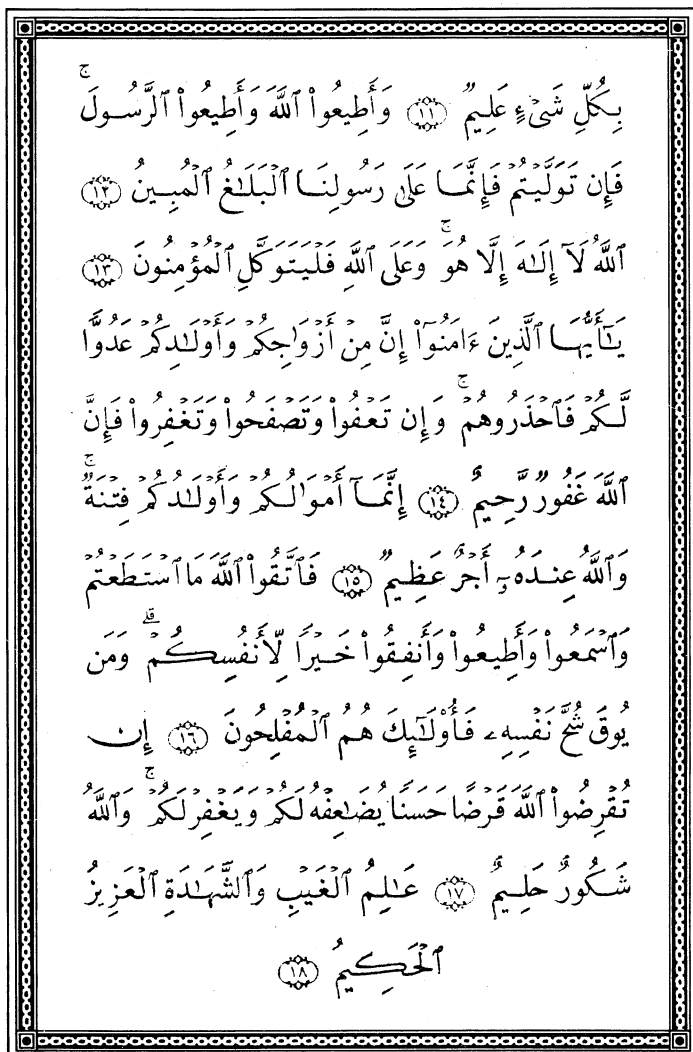 بِكُلِّ شَىْءٍ عَلِيمٌ ﴿١١﴾ وَأَطِيعُوا۟ ٱللَّهَ وَأَطِيعُوا۟ ٱلرَّسُولَ ۚ
فَإِن تَوَلَّيْتُمْ فَإِنَّمَا عَلَىٰ رَسُولِنَا ٱلْبَلَـٰغُ ٱلْمُبِينُ ﴿١٢﴾
ٱللَّهُ لَآ إِلَـٰهَ إِلَّا هُوَ ۚ وَعَلَى ٱللَّهِ فَلْيَتَوَكَّلِ ٱلْمُؤْمِنُونَ ﴿١٣﴾
يَـٰٓأَيُّهَا ٱلَّذِينَ ءَامَنُوٓا۟ إِنَّ مِنْ أَزْوَٰجِكُمْ وَأَوْلَـٰدِكُمْ عَدُوًّا
لَّكُمْ فَٱحْذَرُوهُمْ ۚ وَإِن تَعْفُوا۟ وَتَصْفَحُوا۟ وَتَغْفِرُوا۟ فَإِنَّ
ٱللَّهَ غَفُورٌ رَّحِيمٌ ﴿١٤﴾ إِنَّمَآ أَمْوَٰلُكُمْ وَأَوْلَـٰدُكُمْ فِتْنَةٌ ۚ
وَٱللَّهُ عِندَهُۥٓ أَجْرٌ عَظِيمٌ ﴿١٥﴾ فَٱتَّقُوا۟ ٱللَّهَ مَا ٱسْتَطَعْتُمْ
وَٱسْمَعُوا۟ وَأَطِيعُوا۟ وَأَنفِقُوا۟ خَيْرًا لِّأَنفُسِكُمْ ۗ وَمَن
يُوقَ شُحَّ نَفْسِهِۦ فَأُو۟لَـٰٓئِكَ هُمُ ٱلْمُفْلِحُونَ ﴿١٦﴾ إِن
تُقْرِضُوا۟ ٱللَّهَ قَرْضًا حَسَنًا يُضَـٰعِفْهُ لَكُمْ وَيَغْفِرْ لَكُمْ ۚ وَٱللَّهُ
شَكُورٌ حَلِيمٌ ﴿١٧﴾ عَـٰلِمُ ٱلْغَيْبِ وَٱلشَّهَـٰدَةِ ٱلْعَزِيزُ
ٱلْحَكِيمُ ﴿١٨﴾